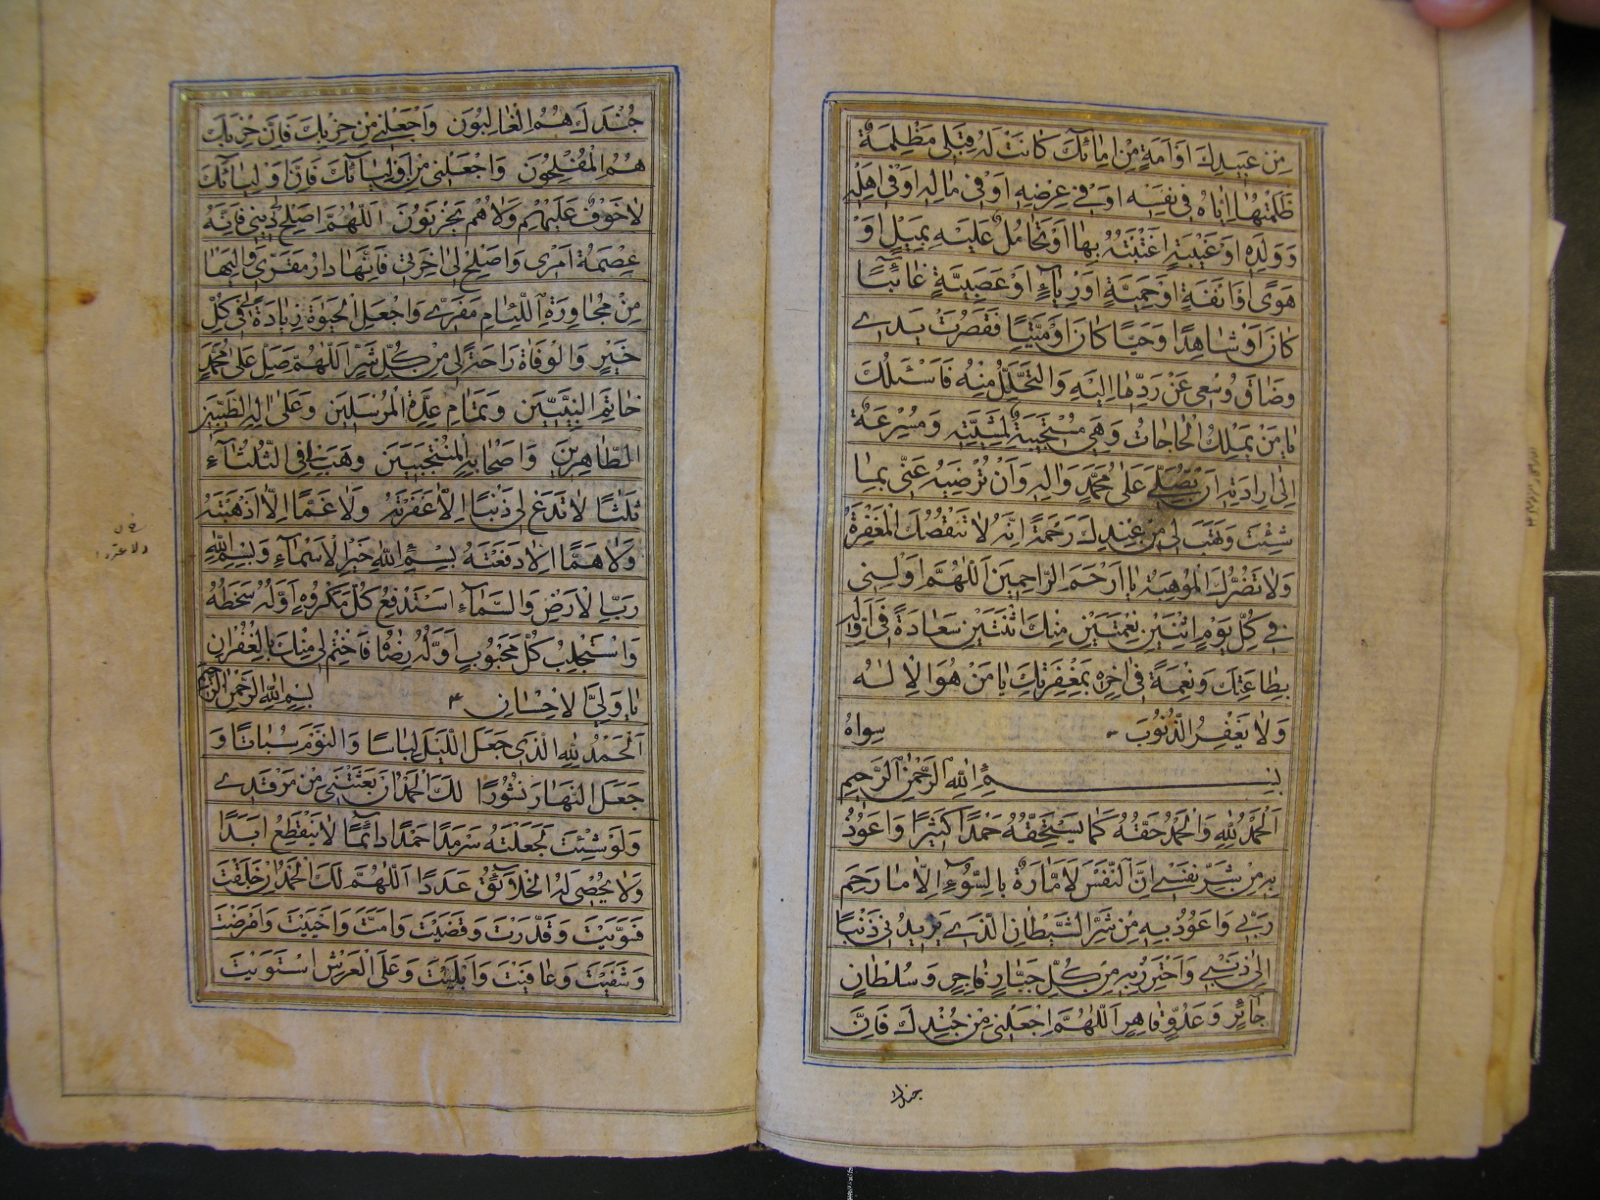 مِن عَبِيدِكَ اَوْ اَمَةٍ مِنْ اِمائِكَ كانَتْ لَهُ قِبَلى مَظْلِمَةٌ
ظَلَمْتُها اِيّاهُ فى نَفْسِهِ اَوْ فى عِرْضِهِ اَوْ فى مالِهِ اَوْ فى اَهْلِهِ
وَ وَلَدِهِ اَوْ غَيْبَةٍ اغْتَبْتُهُ بِها اَوْ تَحامُلٌ عَلَيْهِ بِمَيْلٍ اَوْ
هَوًى اَوْ اَنَفَةٍ اَوْ حَمِيَّةٍ اَوْ رِياءٍ اَوْ عَصَبِيَّةٍ غائِبًا
كانَ اَوْ شاهِدًا وَ حَيًّا كانَ اَوْ مَيِّتًا فَقَصُرَتْ يَدى
وَضاقَ وُسْعى عَنْ رَدِّها اِلَيْهِ وَالتَّحَلُّلِ مِنْهُ فَاَسْئَلُكَ
يا مَنْ يَمْلِكُ الْحاجاتِ وَهِىَ مُسْتَجيبَةٌ لِمَشِيَّتِهِ وَمُسْرِعَةٌ
اِلى اِرادَتِهِ اَنْ تُصَلِّىَ عَلى مُحَمَّدٍ وَالِهِ وَاَنْ تُرْضِيَهُ عَنّى بِما
شِئْتَ وَتَهَبَ لى مِنْ عِنْدِكَ رَحْمَةً اِنَّهُ لا تَنْقُصُكَ الْمَغْفِرَةُ
وَلا تَضُرُّكَ الْمَوْهِبَةُ يا اَرْحَمَ الرّاحِمينَ اَللّهُمَّ اَوْلِنى
فى كُلِّ يَوْمِ اثْنَيْنِ نِعْمَتَيْنِ مِنْكَ ثِنْتَيْنِ سَعادَةً فى اَوَّلِهِ
بِطاعَتِكَ وَنِعْمَةً فى اخِرِهِ بِمَغْفِرَتِكَ يا مَنْ هُوَ الْاِلهُ
وَلا يَغْفِرُ الذُّنُوبَ سِواهُ
بِسْمِ اللهِ الرَّحْمنِ الرَّحيمِ
اَلْحَمْدُ لِلهِ وَالْحَمْدُ حَقُّهُ كَما يَسْتَحِقُّهُ حَمْدًا كَثيرًا وَاَعُوذُ
بِهِ مِنْ شَرِّ نَفْسى اِنَّ النَّفْسَ لَاَمّارَةٌ بِالسُّوءِ اِلّا ما رَحِمَ
رَبّى وَاَعُوذُ بِهِ مِنْ شَرِّ الشَّيْطانِ الَّذى يَزيدُنى ذَنْبًا
اِلى ذَنْبى وَاَحْتَرِزُ بِهِ مِنْ كُلِّ جَبّارٍ فاجِرٍ وَسُلْطانٍ
جائِرٍ وَعَدُوٍّ قاهِرٍ اَللّهُمَّ اجْعَلْنى مِنْ جُنْدِكَ فَاِنَّ
جندك
جُنْدَكَ هُمُ الْغالِبُونَ وَاجْعَلْنى مِنْ حِزْبِكَ فَاِنَّ حِزْبَكَ
هُمُ الْمُفْلِحُونَ وَاجْعَلْنى مِنْ اَوْلِيائِكَ فَاِنَّ اَوْلِيائَكَ
لا خَوْفٌ عَلَيْهِمْ وَلا هُمْ يَحْزَنُونَ اَللّهُمَّ اَصْلِحْ لى دينى فَاِنَّهُ
عِصْمَةُ اَمْرى وَاَصْلِحْ لى اخِرَتى فَاِنَّها دارُ مَقَرّى وَاِلَيْها
مِنْ مُجاوَرَةِ اللِّئامِ مَفَرّى وَاجْعَلِ الْحَيوةَ زِيادَةً لى فى كُلِّ
خَيْرٍ وَالْوَفاةَ راحَةً لى مِنْ كُلِّ شَرٍّ اَللّهُمَّ صَلِّ عَلى مُحَمَّدٍ
خاتَمِ النَّبِيّينَ وَتَمامِ عِدَّةِ الْمُرْسَلينَ وَعَلى الِهِ الطَّيِّبينَ
الطّاهِرينَ وَاَصْحابِهِ الْمُنْتَجَبينَ وَهَبْ لى فِى الثَّلثاءِ
ثَلثًا لا تَدَعْ لى ذَنْبًا اِلّا غَفَرْتَهُ وَلا غَمًّا اِلّا اَذْهَبْتَهُ
وَلا هَمًّا اِلّا دَفَعْتَهُ بِسْمِ اللهِ خَيْرِ الْاَسْماءِ وَبِسْمِ اللهِ
رَبِّ الْاَرْضِ وَالسَّماءِ اَسْتَدْفِعُ كُلَّ مَكْرُوهٍ اَوَّلُهُ سَخَطُهُ
وَاَسْتَجْلِبُ كُلَّ مَحْبُوبٍ اَوَّلُهُ رِضاهُ فَاخْتِمْ لى مِنْكَ بِالْغُفْرانِ
يا وَلِىَّ الْاِحْسانِ بِسْمِ اللهِ الرَّحْمنِ الرَّحيمِ
اَلْحَمْدُ لِلهِ الَّذى جَعَلَ اللَّيْلَ لِباسًا وَالنَّوْمَ سُباتًا وَ
جَعَلَ النَّهارَ نُشُورًا لَكَ الْحَمْدُ اَنْ بَعَثْتَنى مِنْ مَرْقَدى
وَلَوْ شِئْتَ لَجَعَلْتَهُ سَرْمَدًا حَمْدًا دائِمًا لا يَنْقَطِعُ اَبَدًا
وَلا يُحْصى لَهُ الْخَلائِقُ عَدَدًا اَللّهُمَّ لَكَ الْحَمْدُ اَنْ خَلَقْتَ
فَسَوَّيْتَ وَقَدَّرْتَ وَقَضَيْتَ وَاَمَتَّ وَاَحْيَيْتَ وَاَمْرَضْتَ
وَشَفَيْتَ وَعافَيْتَ وَاَبْلَيْتَ وَعَلَى الْعَرْشِ اسْتَوَيْتَ